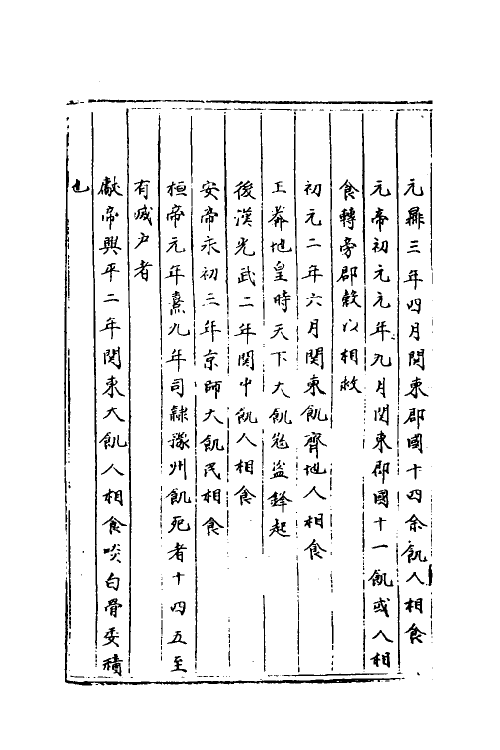 元鼎三年四月関東郡國十四余飢人相食
元帝初元元年九月関東郡國十一飢或人相
食轉旁郡穀以相救
初元二年六月関東飢齊地人相食
王莽地皇時天下大飢冦盗鋒起
後漢光武二年関中飢人相食
安帝永初三年京師大飢民相食
桓帝元年熹九年司隷豫州飢死者十四五至
有滅户者
獻帝興平二年関東大飢人相食啖白骨委積
也